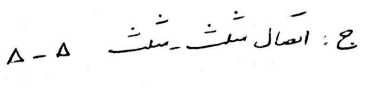 ج : اتصال مثلث - مثلث Δ - Δ